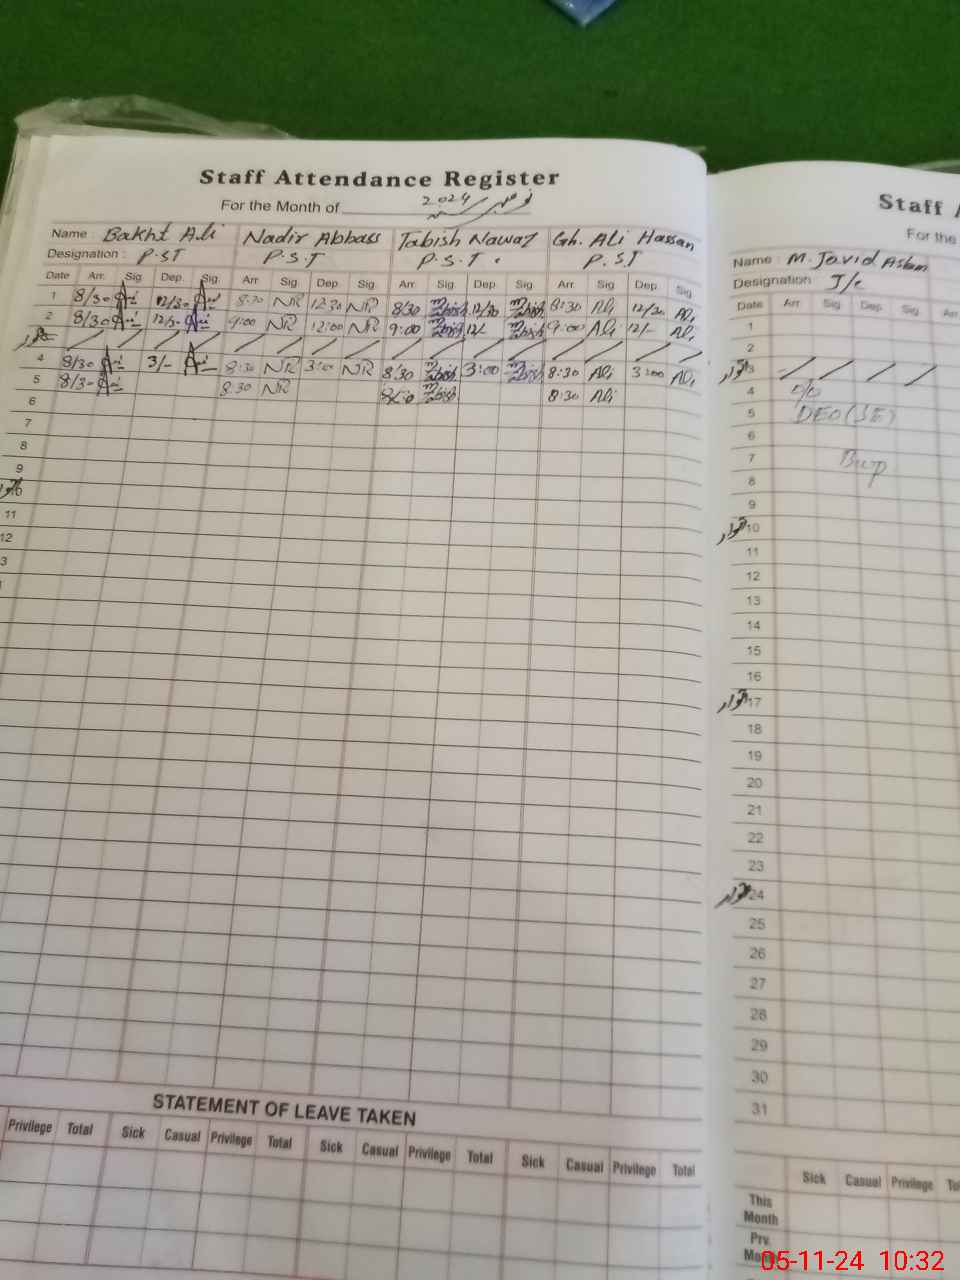 Staff Attendance Register
For the Month of نومبر 2024
Name : Bakht Ali Nadir Abbass Tabish Nawaz Gh. Ali Hassan
Designation : P.ST P.S.T P.S.T. P.S.T
Date Arr. Sig. Dep. Sig. Arr. Sig. Dep. Sig. Arr. Sig. Dep. Sig. Arr. Sig. Dep. Sig
1 8/30 12/30 8:30 NR 12:30 NR 8/30 12/30 8:30 Ali 12/30 Ali
2 8/30 12/30 9:00 NR 12:00 NR 9:00 12/- 9:00 Ali 12/- Ali
4 8/30 3/- 8:30 NR 3:00 NR 8/30 3:00 8:30 Ali 3:00 Ali
5 8/30 8:30 NR 8:30 8:30 Ali
6
7
8
9
اتوار 10
11
12
3
STATEMENT OF LEAVE TAKEN
Privilege Total Sick Casual Privilege Total Sick Casual Privilege Total Sick Casual Privilege Total
Staff
For the
Name : M. Javid Aslam
Designation J/c
Date Arr Sig Dep. Sig Arr
1
2
اتوار 3
4 O/O
5 DEO (SE)
6
7 Bwp
8
9
اتوار 10
11
12
13
14
15
16
اتوار 17
18
19
20
21
22
23
اتوار 24
25
26
27
28
29
30
31
Sick Casual Privilege To
This
Month
Prv.
05-11-24 10:32